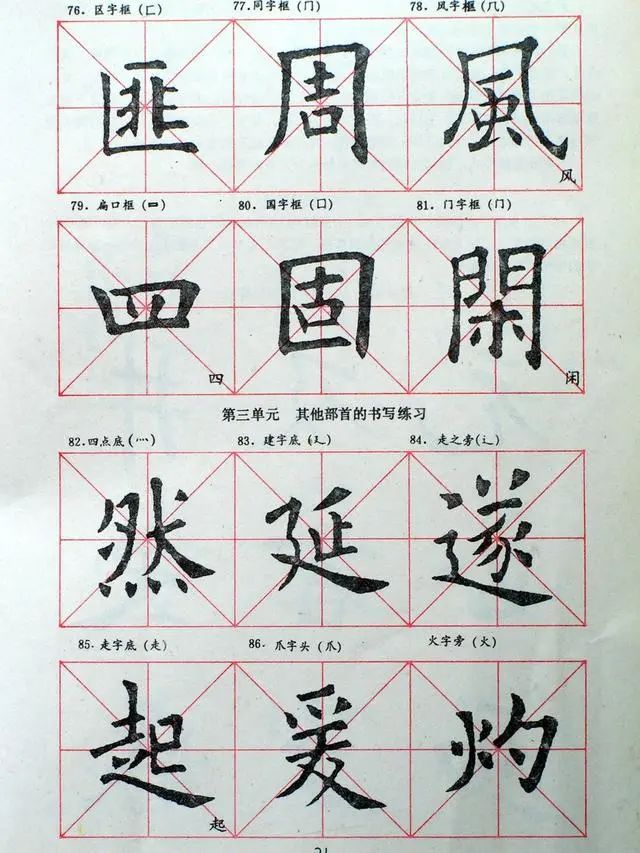 76. 区字框 (匚) 77. 同字框 (冂) 78. 风字框 (几)
匪 周 風
风
79. 扁口框 (罒) 80. 国字框 (囗) 81. 门字框 (门)
四 固 閑
四 闲
第三单元 其他部首的书写练习
82. 四点底 (灬) 83. 建字底 (廴) 84. 走之旁 (辶)
然 延 遂
85. 走字底 (走) 86. 爪字头 (爪) 火字旁 (火)
起 爰 灼
起